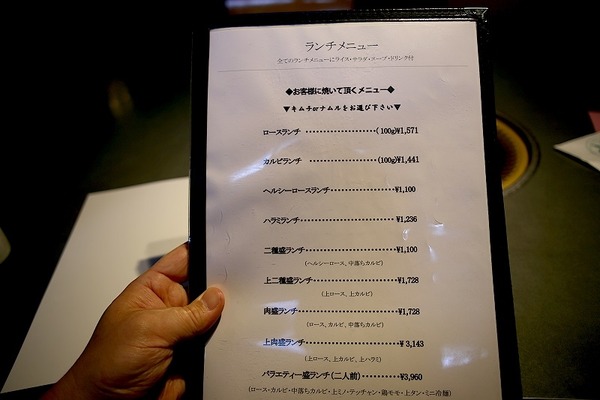 ランチメニュー
全てのランチメニューにライス・サラダ・スープ・ドリンク付
◆お客様に焼いて頂くメニュー◆
▼キムチorナムルをお選び下さい▼
ロースランチ ・・・・・・・・・・・・・・・・・・(100g)¥1,571
カルビランチ ・・・・・・・・・・・・・・・・・・(100g)¥1,441
ヘルシーロースランチ・・・・・・・・・・・・・・・・・・¥1,100
ハラミランチ・・・・・・・・・・・・・・・・・・・・・・・・¥1,236
二種盛ランチ・・・・・・・・・・・・・・・・・・・・・・・¥1,100
(ヘルシーロース、中落ちカルビ)
上二種盛ランチ・・・・・・・・・・・・・・・・・・・・・¥1,728
(上ロース、上カルビ)
肉盛ランチ・・・・・・・・・・・・・・・・・・・・・・・・・¥1,728
(ロース、カルビ、中落ちカルビ)
上肉盛ランチ・・・・・・・・・・・・・・・・・・・・・・・¥ 3,143
(上ロース、上カルビ、上ハラミ)
バラエティー盛ランチ(二人前)・・・・・・・・・¥3,960
(ロース・カルビ・中落ちカルビ・上ミノ・テッチャン・鶏モモ・上タン・ミニ冷麺)